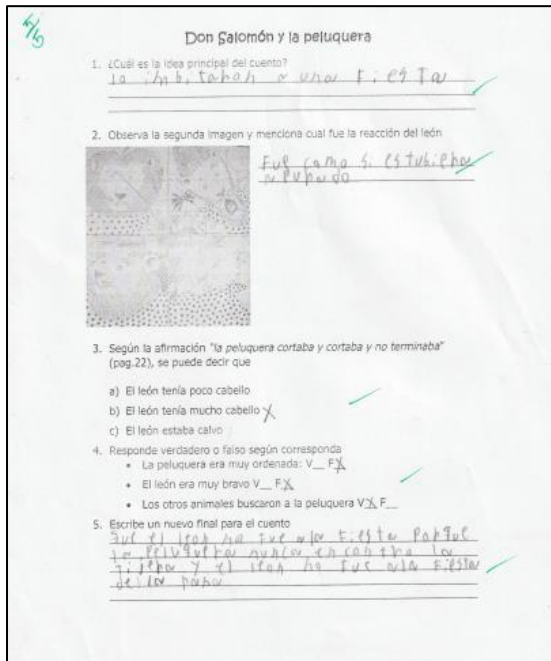 5/5
Don Salomón y la peluquera
1. ¿Cuál es la idea principal del cuento?
lo imbitaban a una fiesta
2. Observa la segunda imagen y menciona cual fue la reacción del león
Fue como si estubiera
apurado
3. Según la afirmación "la peluquera cortaba y cortaba y no terminaba"
(pag.22), se puede decir que
a) El león tenía poco cabello
b) El león tenía mucho cabello X
c) El león estaba calvo
4. Responde verdadero o falso según corresponda
• La peluquera era muy ordenada: V__ F X
• El león era muy bravo V__ F X
• Los otros animales buscaron a la peluquera V X F__
5. Escribe un nuevo final para el cuento
que el leon no fue ala fiesta Porque
la peluquera nunca encontro la
tijera y el leon no fue ala fiesta
de la